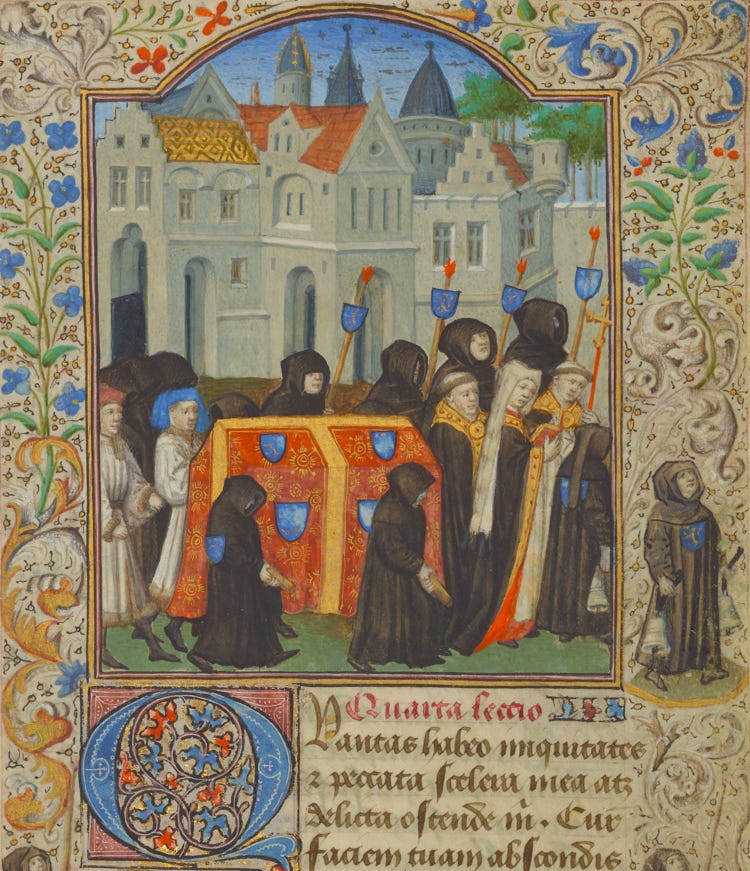 Quarta leccio
QUantas habeo iniquitates
⁊ peccata scelera mea atꝫ
delicta ostende m̄. Cur
faciem tuam abscondis